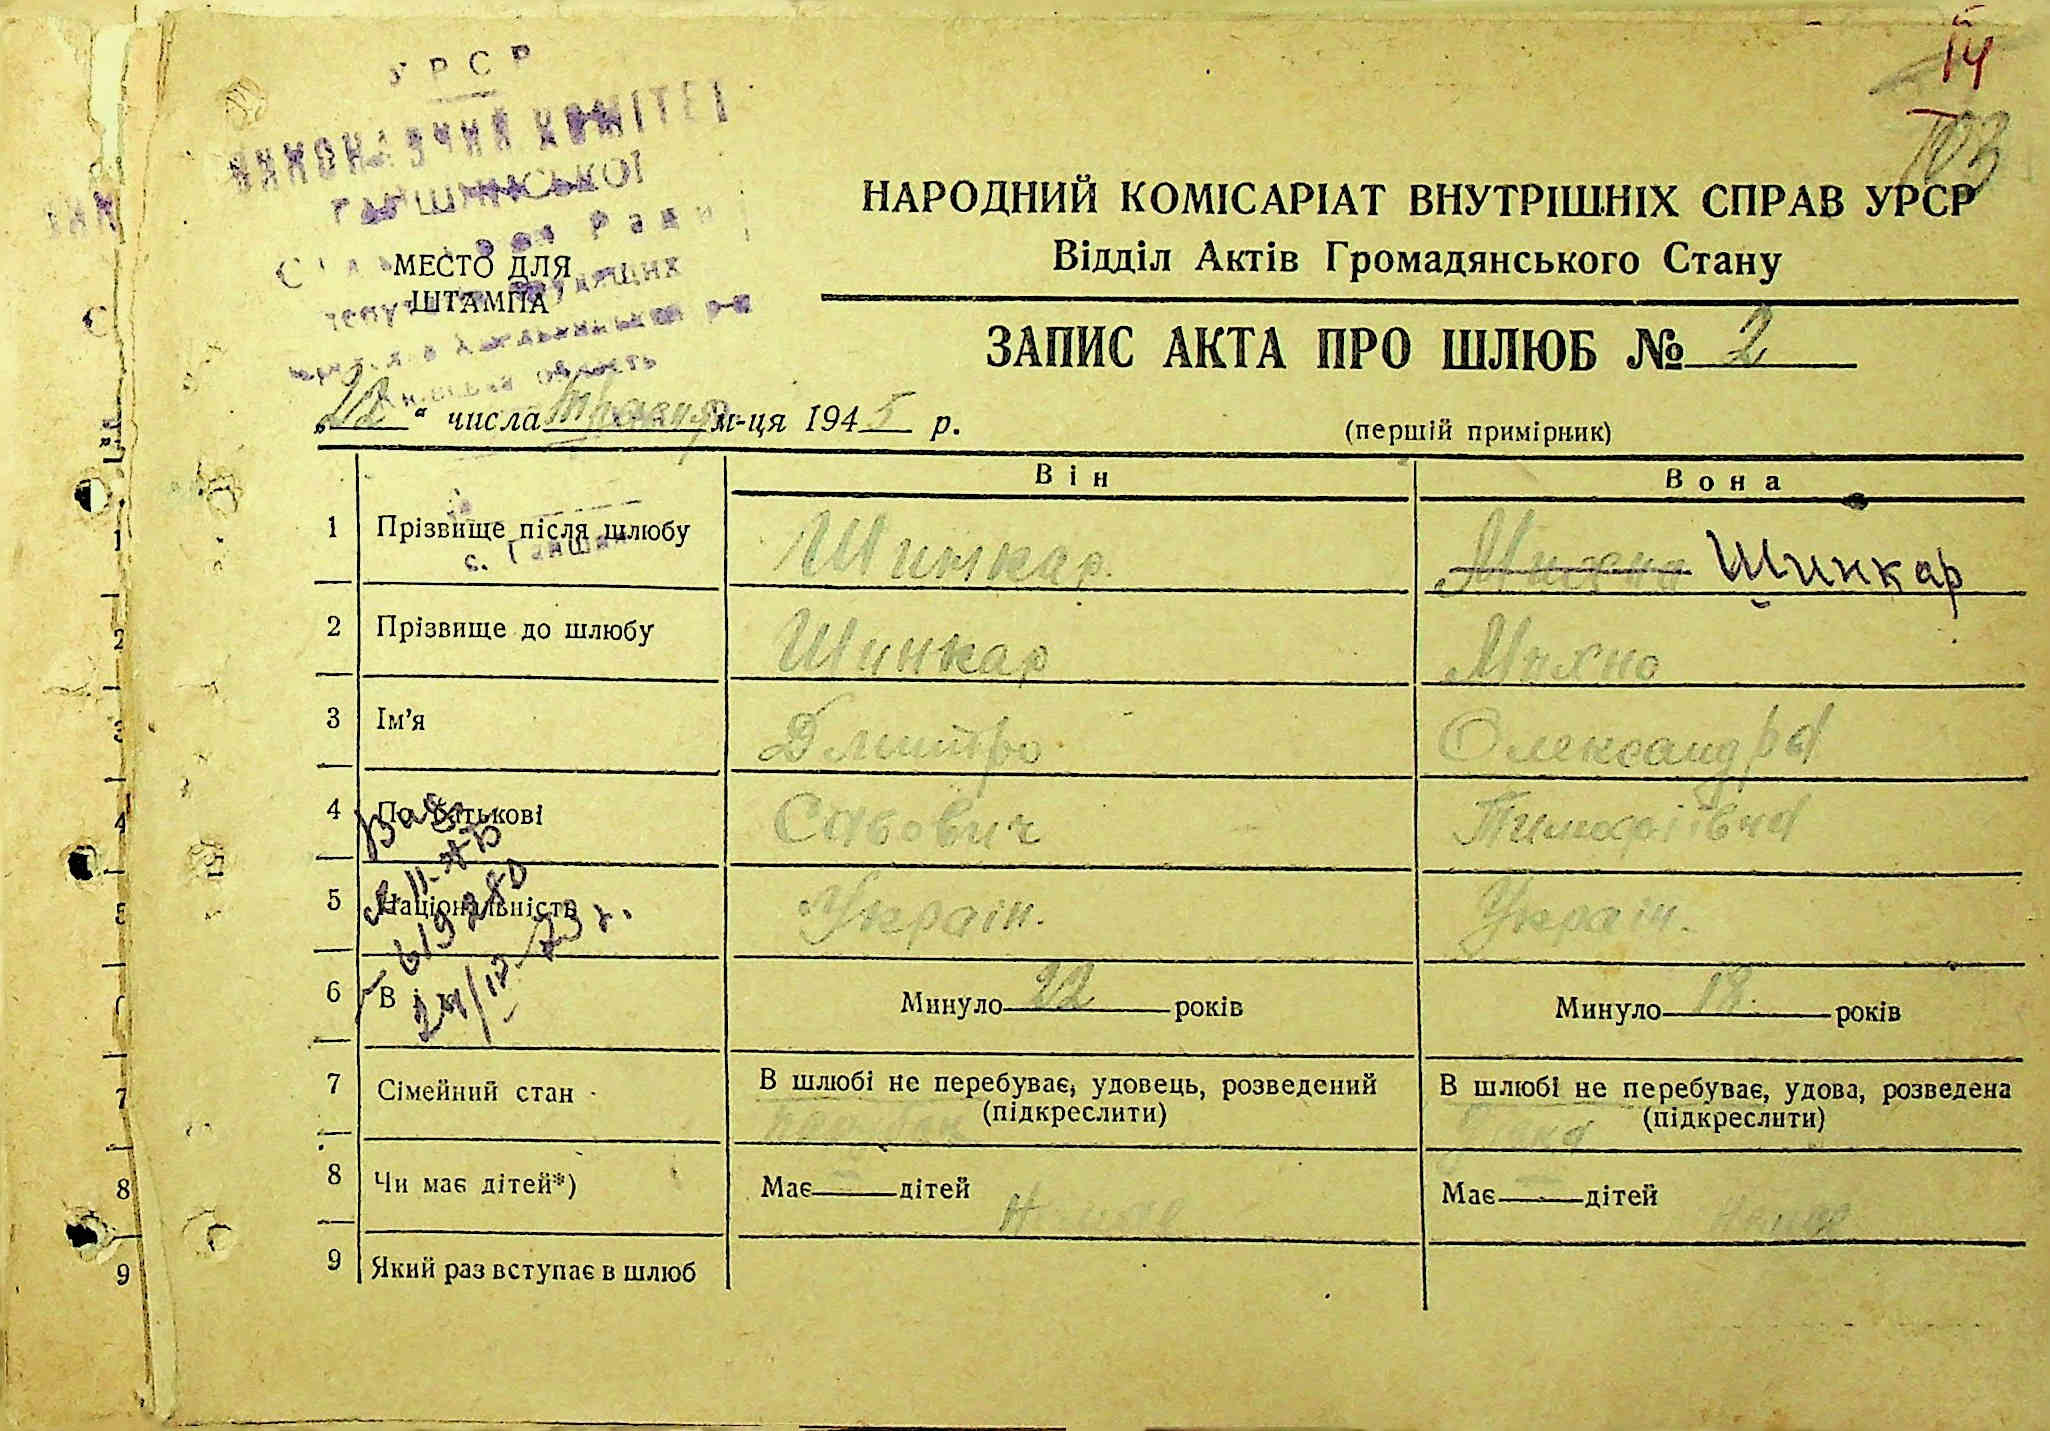 УРСР
ВИКОНАВЧИЙ КОМІТЕТ
ГАНШИНСЬКОЇ
Ради
МЕСТО ДЛЯ
ШТАМПА
область
с. Ганшин
14
103
НАРОДНИЙ КОМІСАРІАТ ВНУТРІШНІХ СПРАВ УРСР
Відділ Актів Громадянського Стану
ЗАПИС АКТА ПРО ШЛЮБ № 2
„22“ числа травня м-ця 1945 р.
(першій примірник)
Він Вона
1 Прізвище після шлюбу Шинкар Михно Шинкар
2 Прізвище до шлюбу Шинкар Михно
3 Ім'я Дмитро Олександра
4 По батькові Савович Тимофіївна
5 Національність Україн. Україн.
6 Вік Минуло 22 років Минуло 18 років
7 Сімейний стан В шлюбі не перебуває, удовець, розведений В шлюбі не перебуває, удова, розведена
(підкреслити) (підкреслити)
8 Чи має дітей*) Має — дітей Має — дітей
9 Який раз вступає в шлюб
619280
1
2
3
4
5
7
8
9